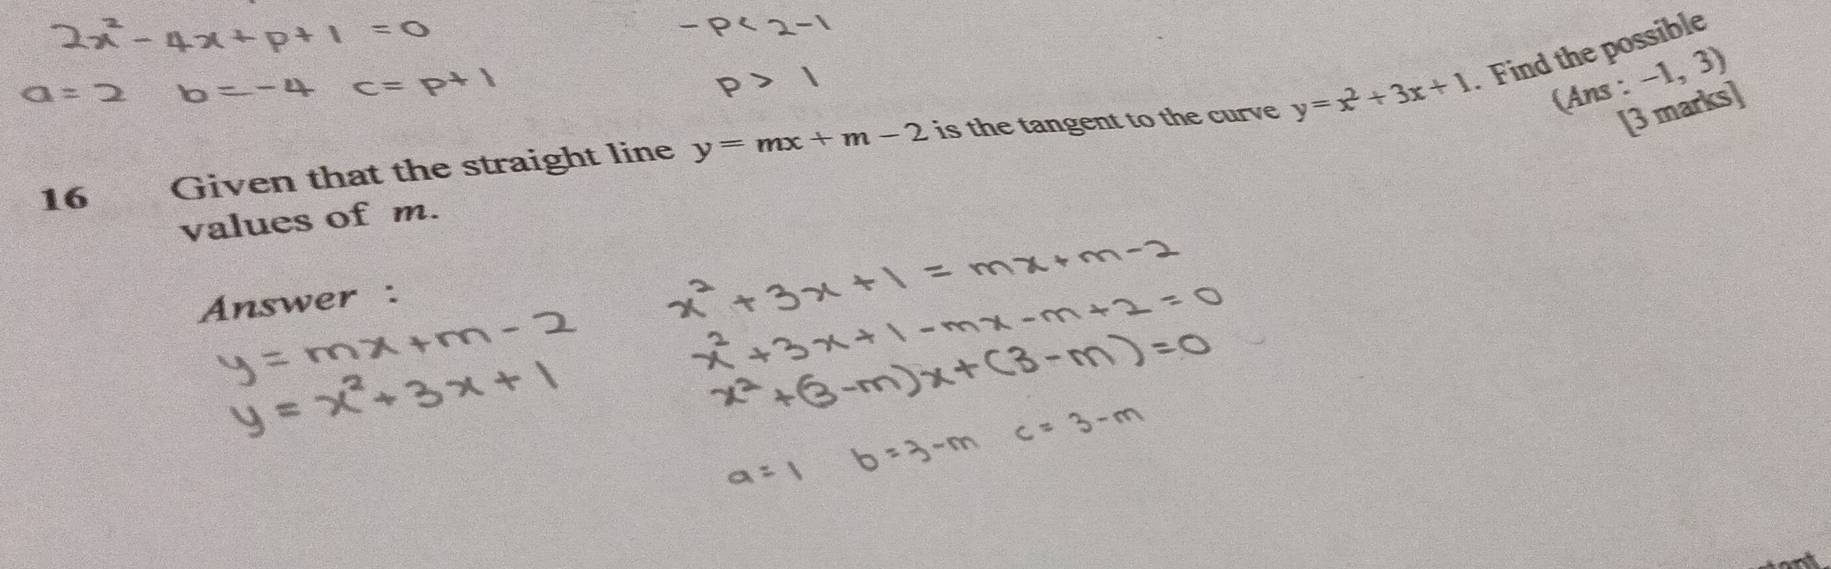 2x² - 4x + p + 1 = 0
a = 2 b = -4 c = p + 1
-p < 2 - 1
p > 1
16 Given that the straight line y = mx + m − 2 is the tangent to the curve y = x² + 3x + 1. Find the possible
values of m.
(Ans : −1, 3)
[3 marks]
Answer :
y = mx + m - 2
y = x² + 3x + 1
x² + 3x + 1 = mx + m - 2
x² + 3x + 1 - mx - m + 2 = 0
x² + (3 - m)x + (3 - m) = 0
a = 1 b = 3 - m c = 3 - m